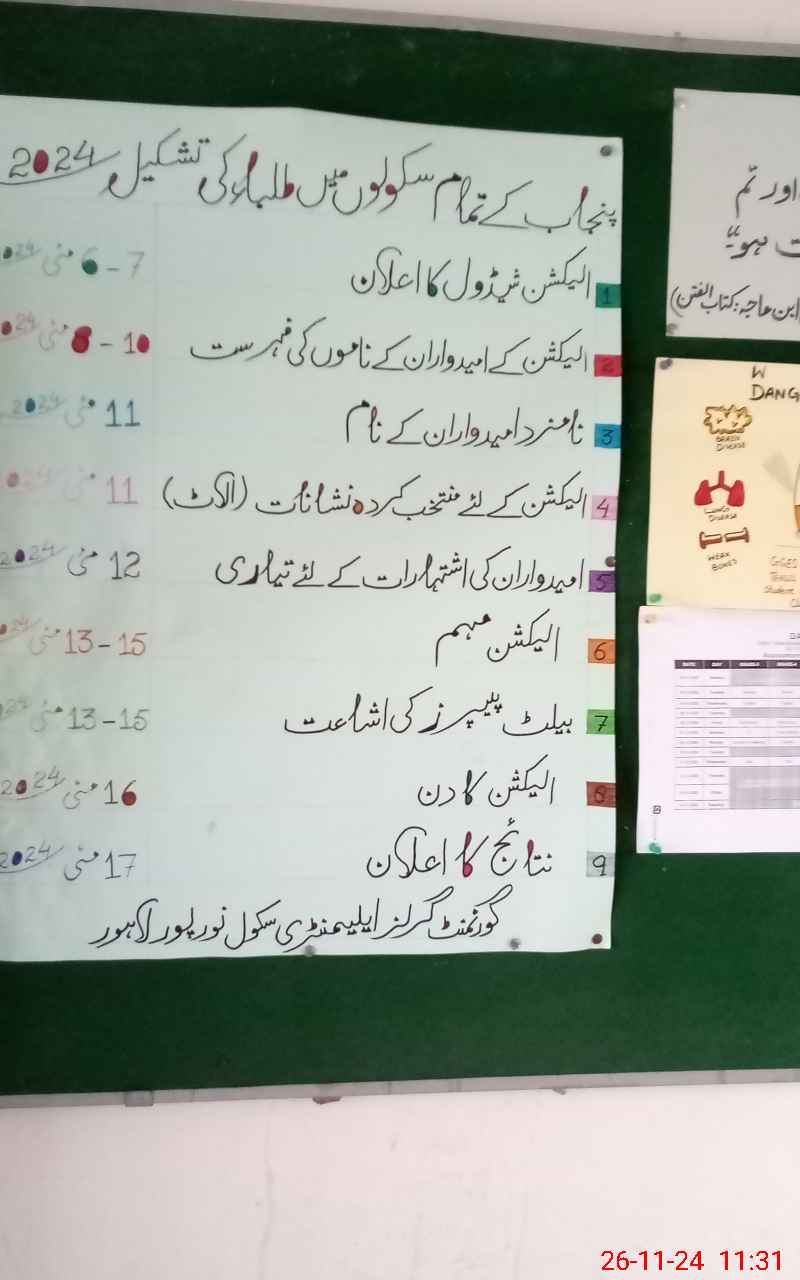 پنجاب کے تمام سکولوں میں طلباء کی تشکیل 2024
1 الیکشن شیڈول کا اعلان 6-7 مئی 2024
2 الیکشن کے امیدواران کے ناموں کی فہرست 8-10 مئی 2024
3 نامزد امیدواران کے نام 11 مئی 2024
4 الیکشن کے لئے منتخب کردہ نشانات (الاٹ) 11 مئی 2024
5 امیدواران کی اشتہارات کے لئے تیاری 12 مئی 2024
6 الیکشن مہم 13-15 مئی 2024
7 بیلٹ پیپرز کی اشاعت 13-15 مئی 2024
8 الیکشن کا دن 16 مئی 2024
9 نتائج کا اعلان 17 مئی 2024
گورنمنٹ گرلز ایلیمنٹری سکول نور پور لاہور
اور تم
ت ہو"
(ابن ماجہ: کتاب الفتن)
W
DANG
BRAIN
DISEASE
LUNGS
DISEASE
WEAK
BONES
DATE DAY
26-11-24 11:31